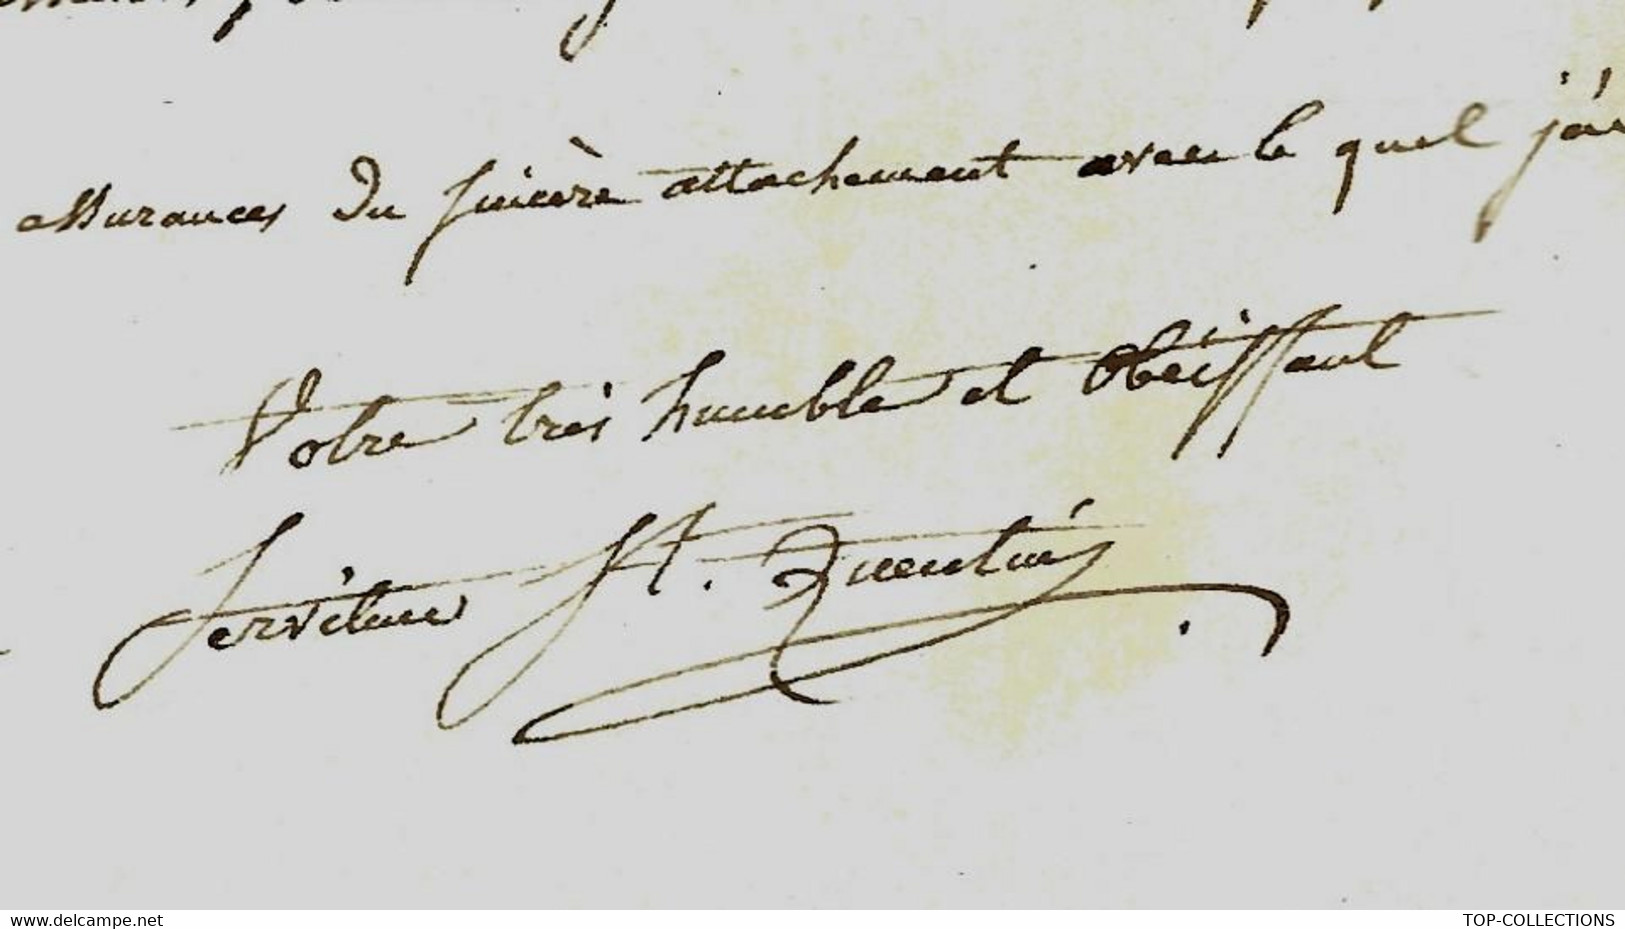 assurances du sincère attachement avec le quel j'ai
Votre très humble et obeissant
Serviteur St. Quentin
www.delcampe.net
TOP-COLLECTIONS